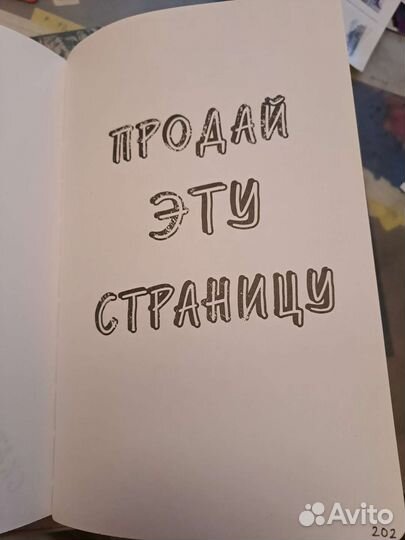 ПРОДАЙ
ЭТУ
СТРАНИЦУ
Avito
202